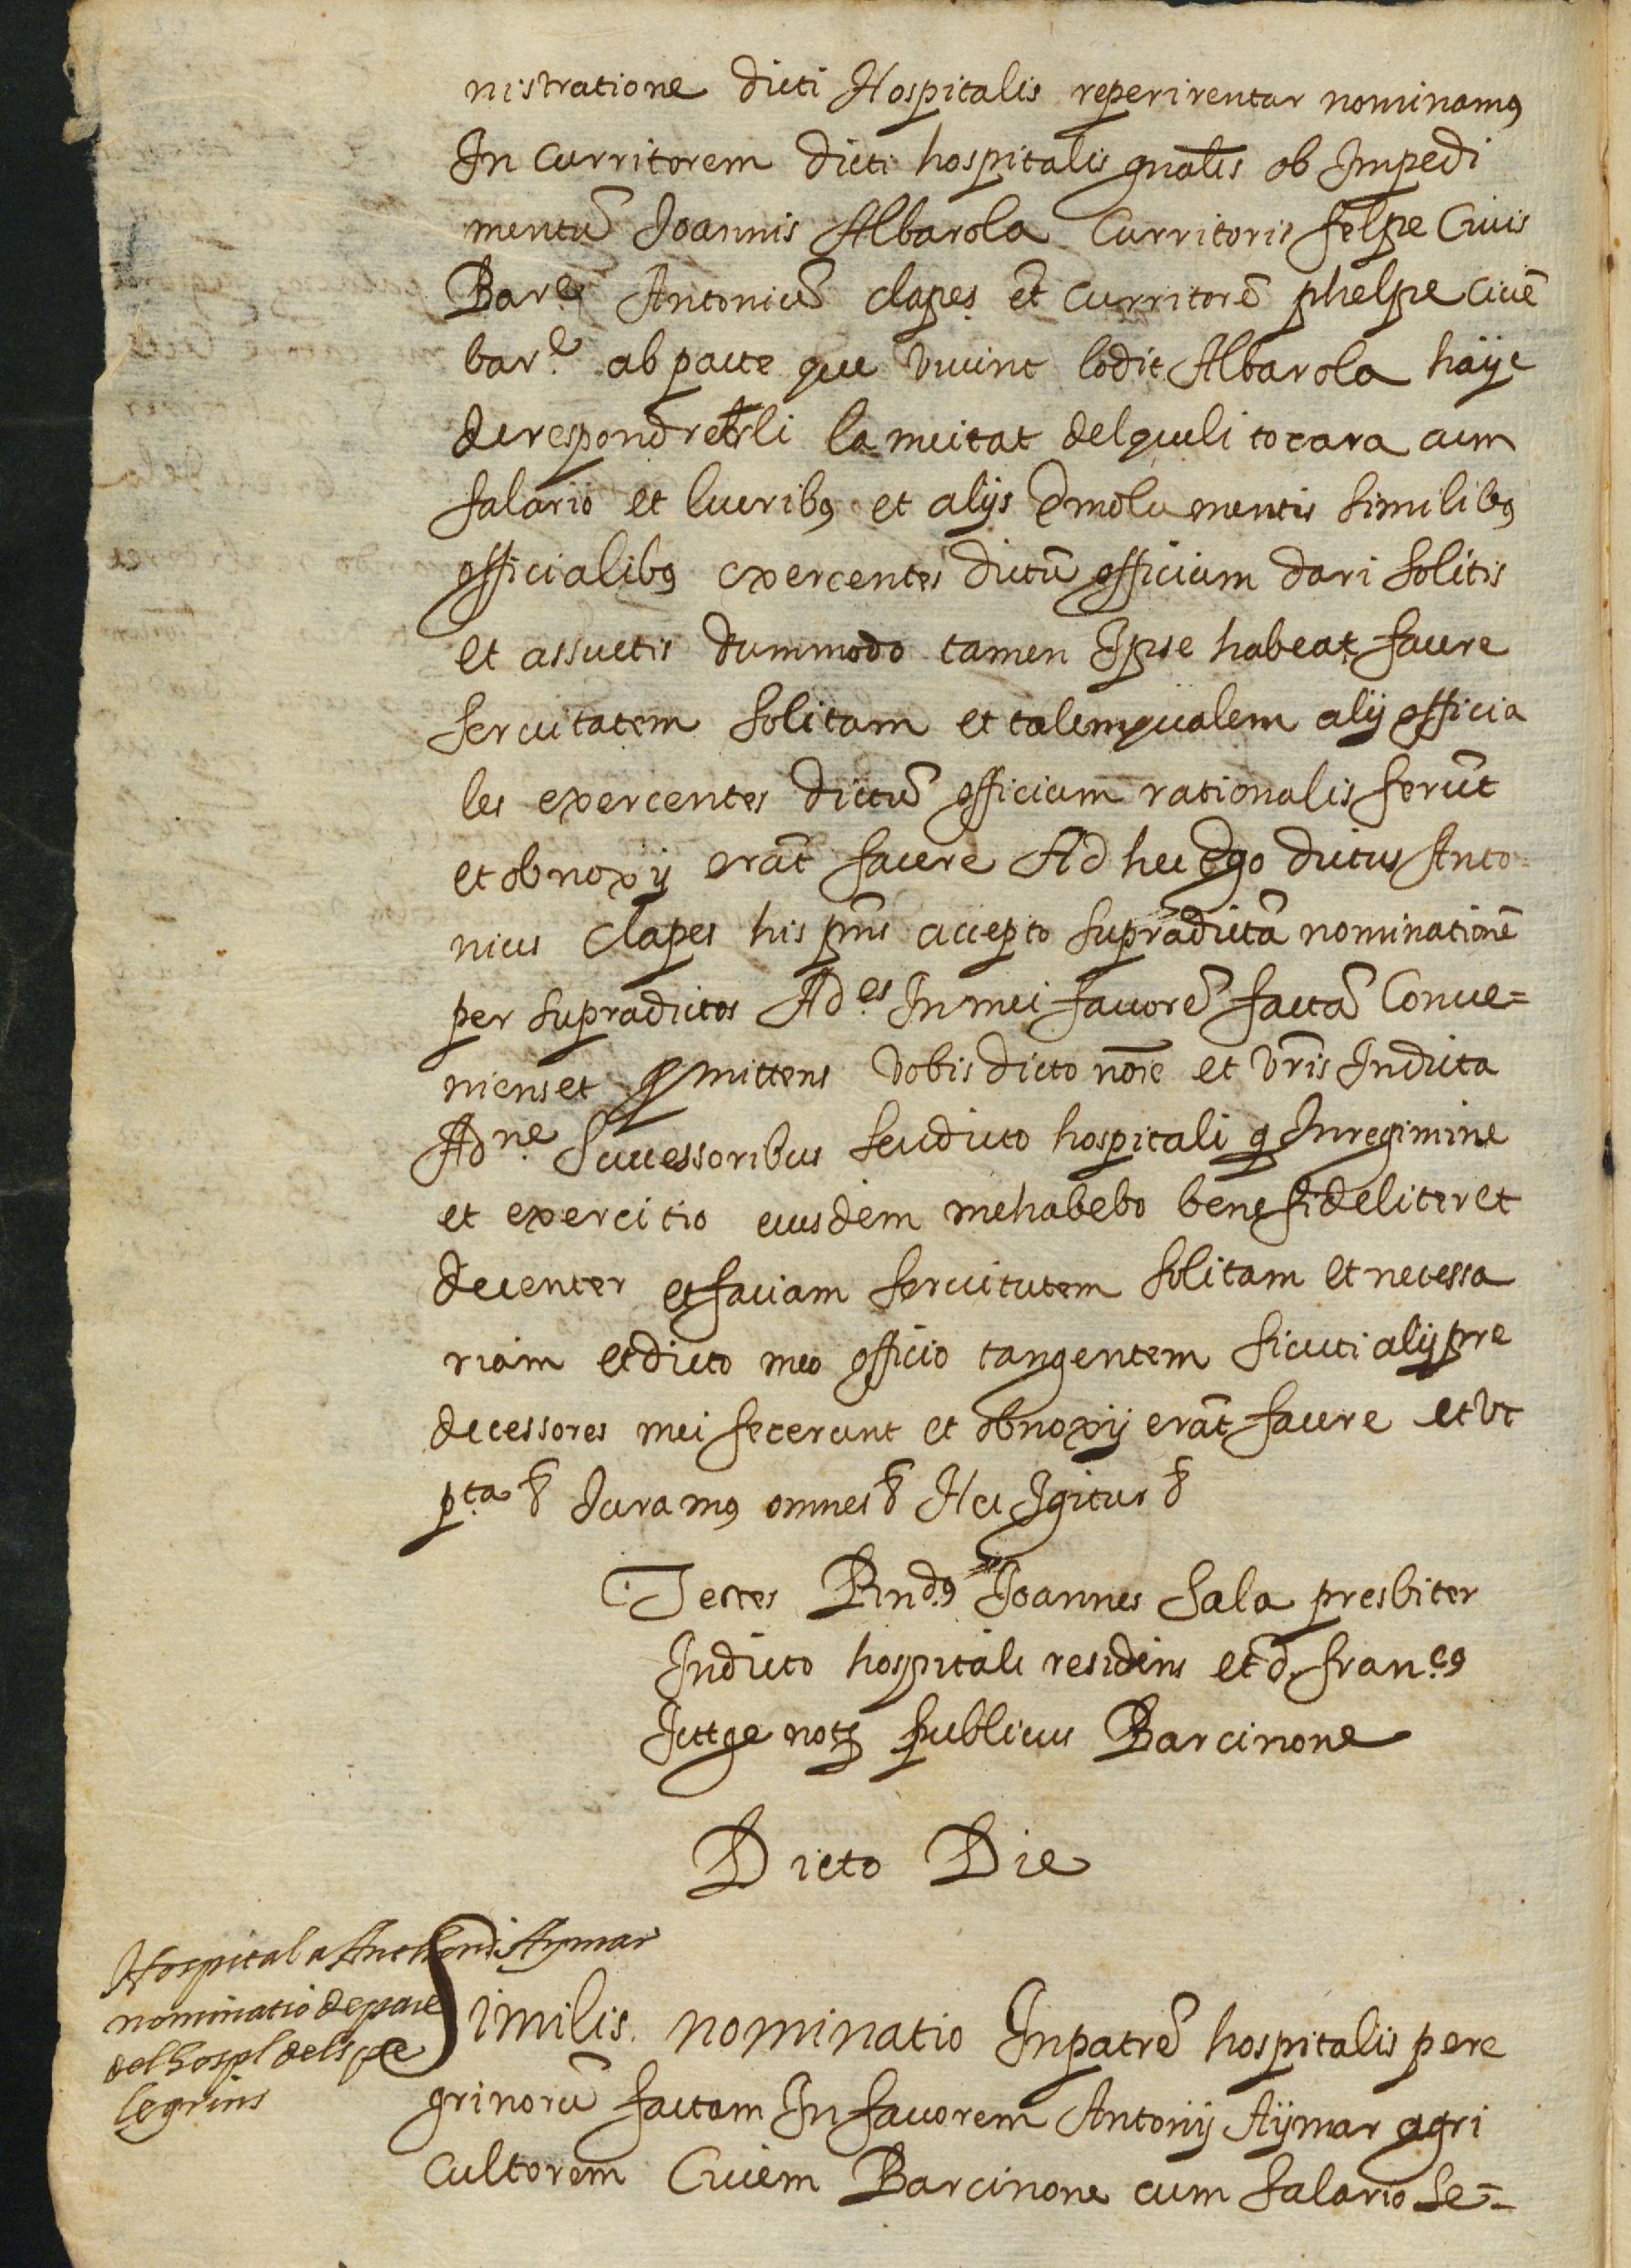 nistratione dicti Hospitalis reperirentur nominamꝰ
In curritorem dicti hospitalis gnālis ob Impedi
mentū Joannis Albarola Curritoris felpe Ciuis
Bare Antoniū clapes et curritorē phelpe ciuē
bar.e ab pacte que viuint lo dit Albarola haÿe
de respondreli la meitat del queli tocara cum
salario et lucribꝰ et alijs Emolumentis similibꝰ
officialibꝰ exercentes dictū officium dari solitis
et assuetis dummodo tamen Ipse habeat facere
seruitatem solitam et talemqualem alij officia
les exercentes dictū officium rationalis ferūt
et obnoxij erāt facere Ad hec Ego dictus Anto
nius Clapes his pn̄s accepto supradictā nominationē
per supradictos Ad.es In mei fauorē factā Conue=
niens et ꝓmittens vobis dicto noīe et vr̄is In dicta
Ad.ne Successoribus seu dicto hospitali ꝗ In regimine
et exercitio eiusdem me habebo bene fideliter et
decenter et faciam seruitutem solitam et necessa
riam et dicto meo officio tangentem sicuti alij pre
decessores mei fecerunt et obnoxij erāt facere et vt
p.ta & Juramꝰ omnes & Hec Igitur &
Testes Rndꝰ Joannes Sala presbiter
In dicto hospitali residens et d. fran.cꝰ
Jutge notꝫ publicus Barcinone
Dicto Die
Hospital a Anthoni Aymar
nominatio de pare
del hospl dels pe
legrins
Similis nominatio In patrē hospitalis pere
grinorū factam In fauorem Antonij Aÿmar agri
cultorem Ciuem Barcinone cum salario se=